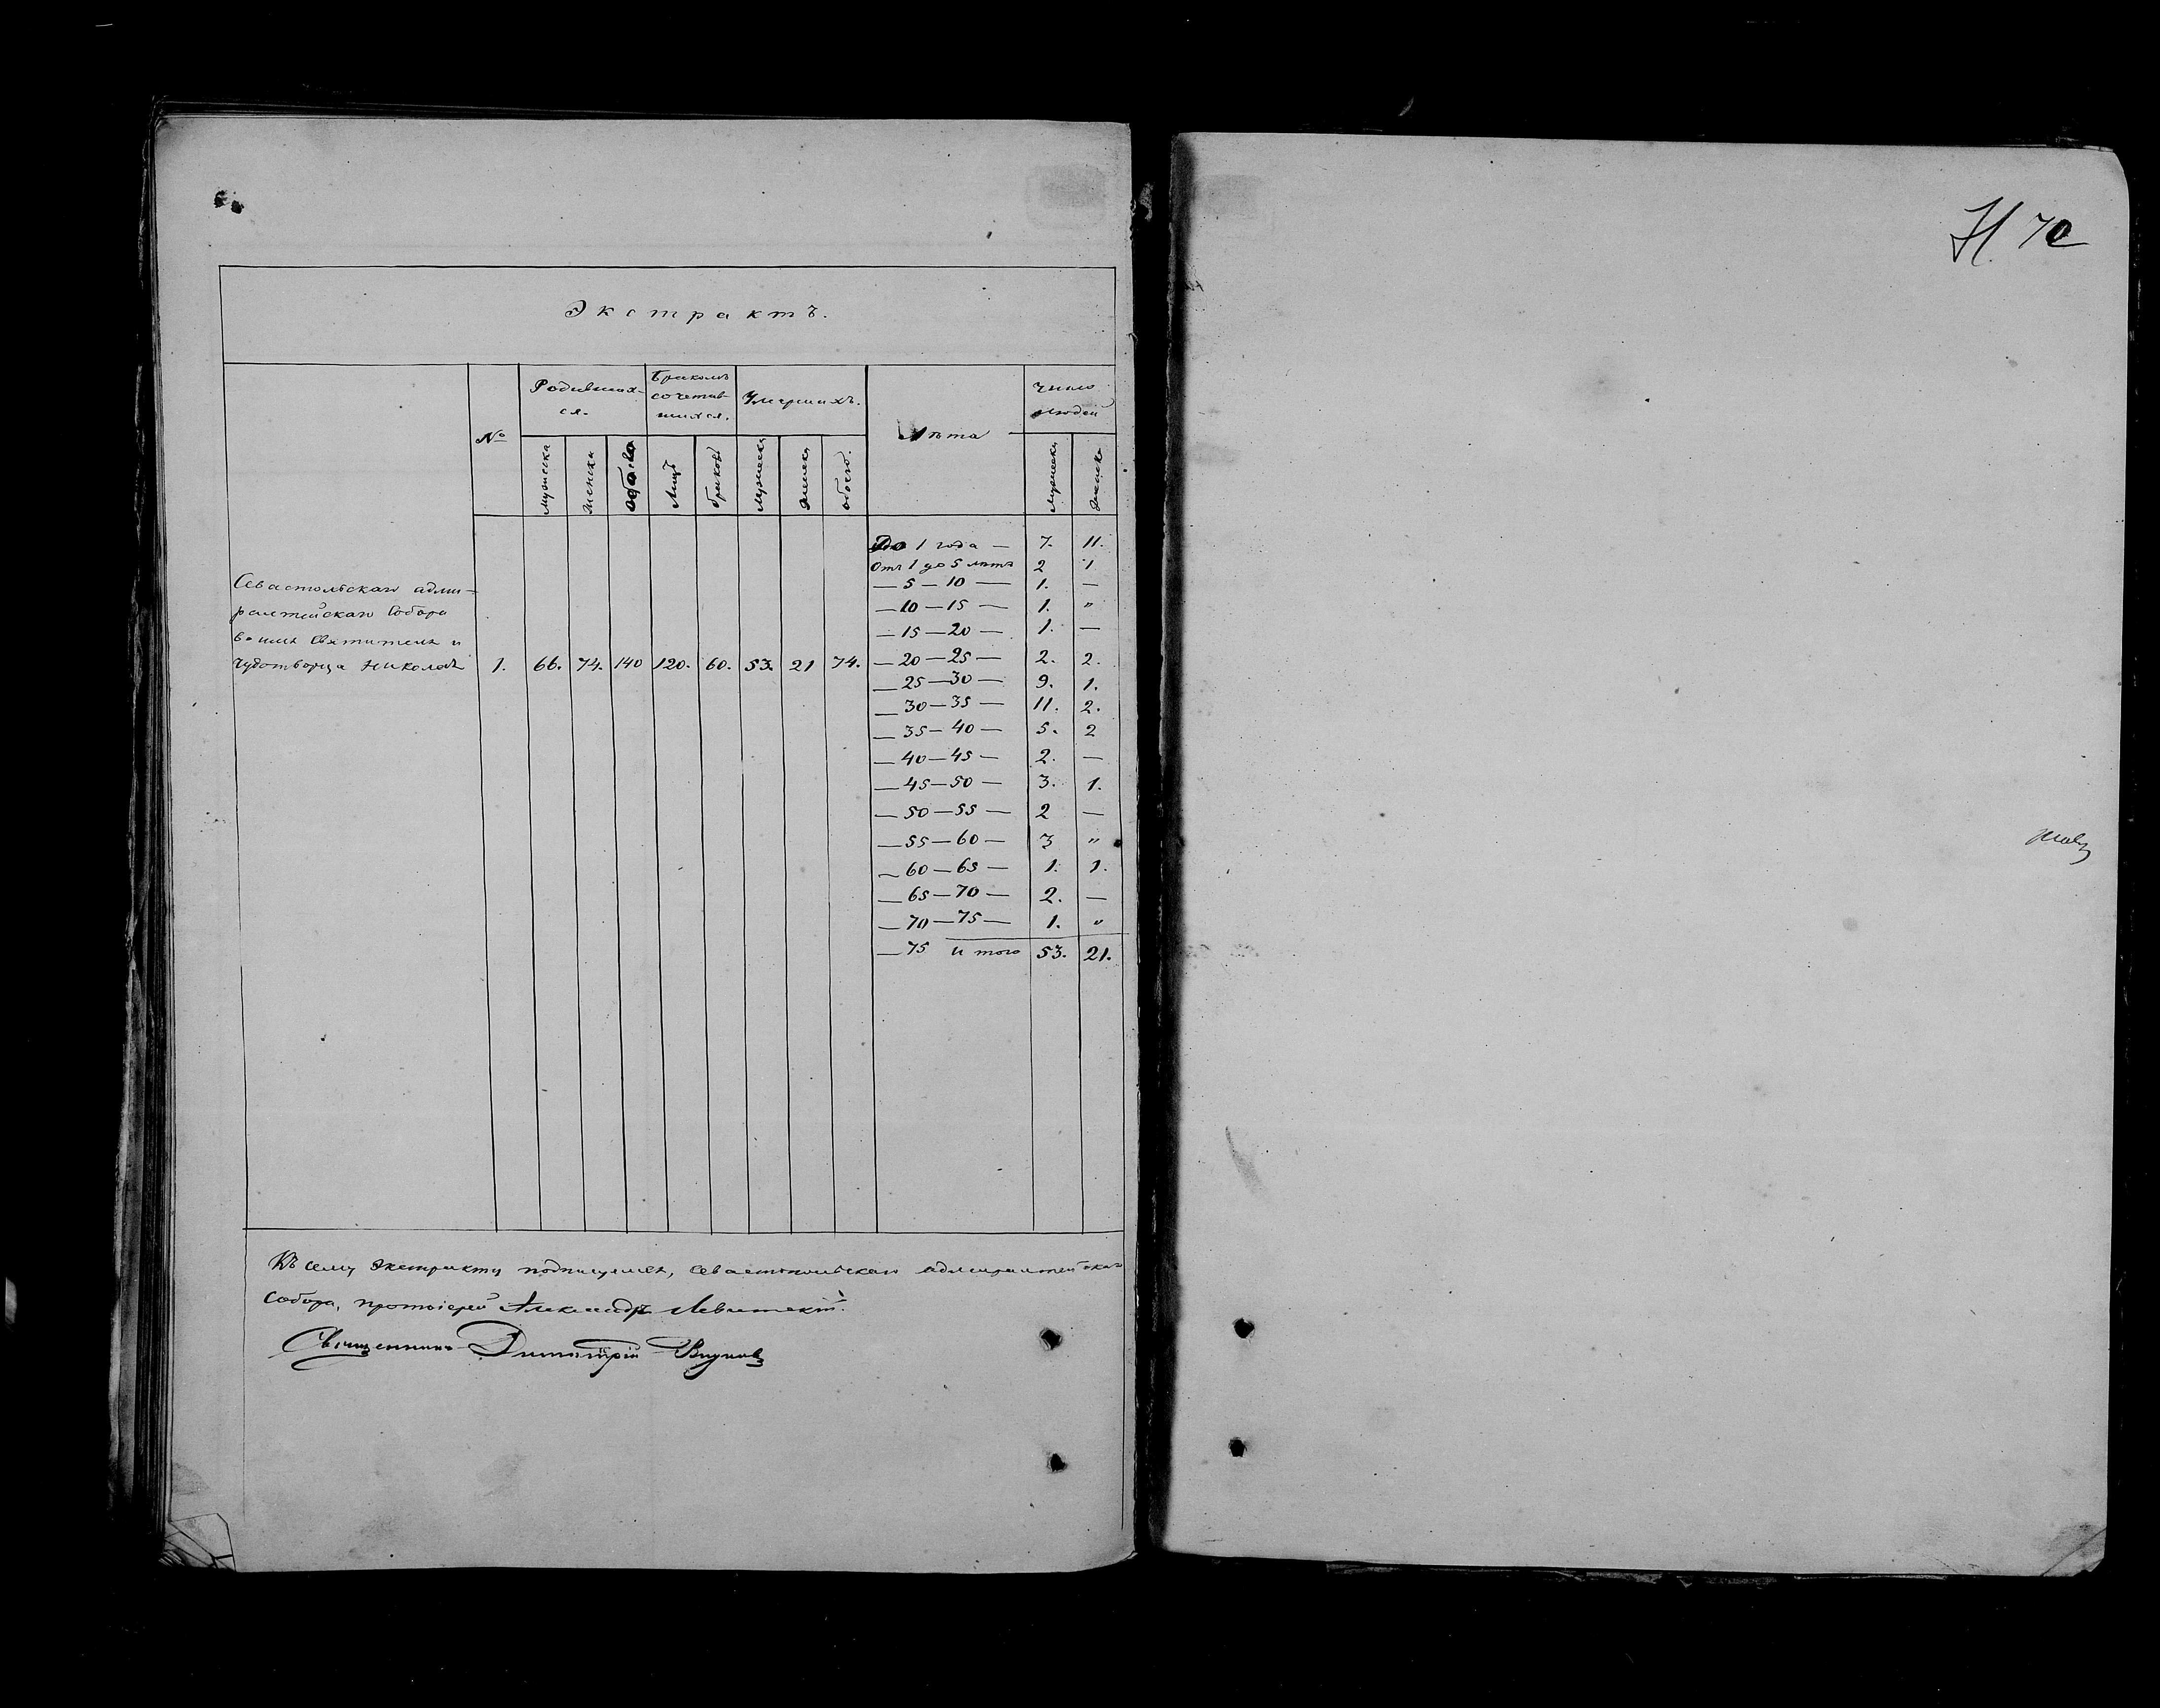 Экстрактъ.
№
Родивших-
ся.
Бракомъ
сочетав-
шихся.
Умершихъ.
Лѣта
Число
людей
мужеска
женска
обоего
Лицъ
браковъ
мужеска
женска
обоего.
мужеска
женска
Севастольскаго адми-
ралтейскаго Собора
во имя Святителя и
Чудотворца Николая 1. 66. 74. 140 120. 60. 53. 21 74.
До 1 года — 7. 11.
Отъ 1 до 5 лѣтъ 2 1
— 5 — 10 — 1. —
— 10 — 15 — 1. "
— 15 — 20 — 1. —
— 20 — 25 — 2. 2.
— 25 — 30 — 9. 1.
— 30 — 35 — 11. 2.
— 35 — 40 — 5. 2
— 40 — 45 — 2. —
— 45 — 50 — 3. 1.
— 50 — 55 — 2 —
— 55 — 60 — 3 "
— 60 — 65 — 1. 1.
— 65 — 70 — 2. —
— 70 — 75 — 1. "
— 75 и того 53. 21.
Къ сему экстракту подписуемся, Севастопольскаго адмиралтейскаго
Собора, протоіерей Александръ
Священникъ Димитрій
70